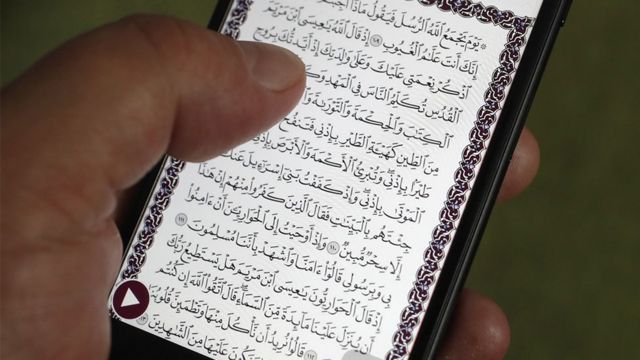 ۞ يَوْمَ يَجْمَعُ ٱللَّهُ ٱلرُّسُلَ فَيَقُولُ مَاذَآ
إِنَّكَ أَنتَ عَلَّٰمُ ٱلْغُيُوبِ ١٠٩ إِذْ قَالَ ٱللَّهُ يَٰعِيسَى ٱبْنَ مَرْيَمَ
ٱذْكُرْ نِعْمَتِى عَلَيْكَ وَعَلَىٰ وَٰلِدَتِكَ إِذْ أَيَّدتُّكَ بِرُوحِ
ٱلْقُدُسِ تُكَلِّمُ ٱلنَّاسَ فِى ٱلْمَهْدِ
ٱلْكِتَٰبَ وَٱلْحِكْمَةَ وَٱلتَّوْرَىٰةَ
مِنَ ٱلطِّينِ كَهَيْـَٔةِ ٱلطَّيْرِ بِإِذْنِى فَتَنفُخُ
طَيْرًۢا بِإِذْنِى وَتُبْرِئُ ٱلْأَكْمَهَ وَٱلْأَبْرَصَ
ٱلْمَوْتَىٰ بِإِذْنِى وَإِذْ كَفَفْتُ بَنِىٓ إِسْرَٰٓءِيلَ عَنكَ
جِئْتَهُم بِٱلْبَيِّنَٰتِ فَقَالَ ٱلَّذِينَ كَفَرُوا۟ مِنْهُمْ إِنْ هَٰذَآ
إِلَّا سِحْرٌ مُّبِينٌ ١١٠ وَإِذْ أَوْحَيْتُ إِلَى ٱلْحَوَارِيِّـۧنَ أَنْ ءَامِنُوا۟
بِى وَبِرَسُولِى قَالُوٓا۟ ءَامَنَّا وَٱشْهَدْ بِأَنَّنَا مُسْلِمُونَ ١١١
إِذْ قَالَ ٱلْحَوَارِيُّونَ يَٰعِيسَى ٱبْنَ مَرْيَمَ هَلْ يَسْتَطِيعُ رَبُّكَ
أَن يُنَزِّلَ عَلَيْنَا مَآئِدَةً مِّنَ ٱلسَّمَآءِ قَالَ ٱتَّقُوا۟ ٱللَّهَ إِن كُنتُم
١١٢ قَالُوا۟ نُرِيدُ أَن نَّأْكُلَ مِنْهَا وَتَطْمَئِنَّ قُلُوبُنَا
وَنَكُونَ عَلَيْهَا مِنَ ٱلشَّٰهِدِينَ ١١٣